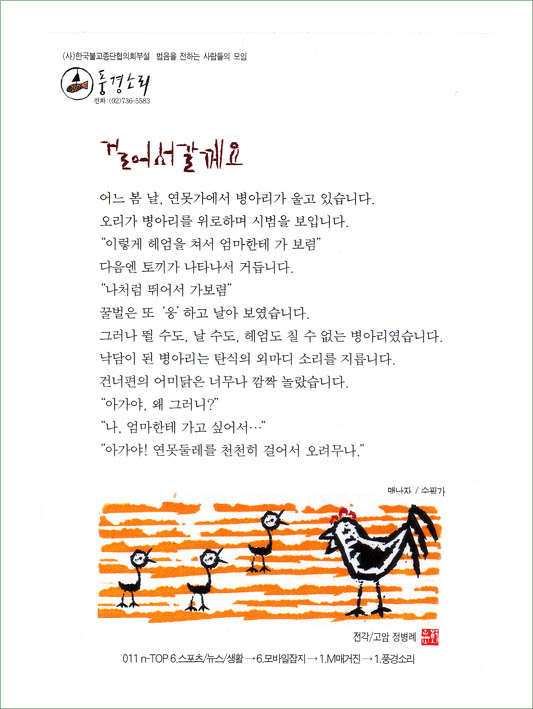 (사)한국불교종단협의회부설 법음을 전하는 사람들의 모임
풍경소리
전화:(02)736-5583
걸어서갈께요
어느 봄 날, 연못가에서 병아리가 울고 있습니다.
오리가 병아리를 위로하며 시범을 보입니다.
"이렇게 헤엄을 쳐서 엄마한테 가 보렴"
다음엔 토끼가 나타나서 거듭니다.
"나처럼 뛰어서 가보렴"
꿀벌은 또 '웅' 하고 날아 보였습니다.
그러나 뛸 수도, 날 수도, 헤엄도 칠 수 없는 병아리였습니다.
낙담이 된 병아리는 탄식의 외마디 소리를 지릅니다.
건너편의 어미닭은 너무나 깜짝 놀랐습니다.
"아가야, 왜 그러니?"
"나, 엄마한테 가고 싶어서…"
"아가야! 연못둘레를 천천히 걸어서 오려무나."
맹난자 / 수필가
전각/고암 정병례
011 n-TOP 6.스포츠/뉴스/생활→6.모바일잡지→1.M매거진→1.풍경소리